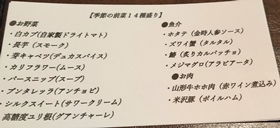 【季節の前菜14種盛り】
●お野菜
・白カブ(自家製ドライトマト)
・長芋(スモーク)
・芽キャベツ(デュカスパイス)
・カリフラワー(ムース)
・パースニップ(スープ)
・プンタレッラ(アンチョビ)
・シルクスイート(サワークリーム)
高糖度ユリ根(グアンチャーレ)
●魚介
・ホタテ(金時人参ソース)
・ズワイ蟹(タルタル)
・鰆(炙りカルパッチョ)
・メジマグロ(アラビアータ)
●お肉
・山形牛ホホ肉(赤ワイン煮込み)
・米沢豚(ボイルハム)